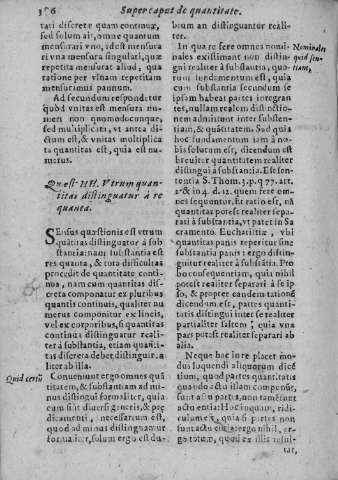 306 Super caput de quantitate.
tati discretæ quam continuæ,
sed solum ait, omne quantum
mensurari vno, id est mensura
ri vna mensura singulari, quæ
repetita mensurat aliud, qua
ratione per vlnam repetitam
mensuramus pannum.
Ad secundum respondetur
quòd vnitas est mensura nu-
meri non quomodocunque,
sed multiplicata, vt antea di-
ctum est, & vnitas multiplica
ta quantitas est, quia est nu-
merus.
Quæst. IIII. Vtrum quan-
titas distinguatur à re
quanta.
SEnsus quæstionis est vtrum
quātitas distinguatur à sub
stantia: nam substantia est
res quanta, & tota difficultas
procedit de quantitate conti-
nua, nam cum quantitas dis-
creta componatur ex pluribus
quantis continuis, qualiter nu
merus componitur ex lineis,
vel ex corporibus, si quantitas
continua distinguatur reali-
ter à substantia, etiam quāti-
tas discreta debet distingui rea
liter ab illa.
Quid certū
Conueniunt ergo omnes quā
titatem, & substantiam ad mi-
nus distingui formaliter, quia
cum sint diuersi generis, & præ
dicamenti, necessarium est,
quod ad minus distinguantur
formaliter, solum ergo est du-
bium an distinguantur reali-
ter.
In qua re fere omnes nomi-
nales existimant non distin-
gui realiter à substantia, quo-
rum fundamentum est, quia
cum substantia secundum se
ipsam habeat partes integran
tes, nullam realem distinctio-
nem admittunt inter substan-
tiam, & quātitatem. Sed quia
hoc fundamentum iam à no-
bis solutum est, dicendum est
breuiter quantitatem realiter
distingui à substantia. Est sen-
tentia S. Thom. 3. p. q. 77. art.
2. & in 4. d. 12. quem fere om-
nes sequuntur. Et ratio est, nā
quantitas potest realiter sepa-
rari à substantia, vt patet in Sa
cramento Eucharistiæ, vbi
quantitas panis reperitur sine
substantia panis: ergo distin-
guitur realiter à substātia. Pro
bo consequentiam, quia nihil
potest realiter separari à se ip
so, & propter eandem rationē
dicendum est, partes quanti-
tatis distingui inter se realiter
partialiter saltem, quia vna
pars potest realiter separari ab
alia.
Nominales
quid sen-
tiant.
Neque hac in re placet mo-
dus loquendi aliquorum dicē
tium, quod partes quantitatis
quando actu illam componūt,
sunt actu partes, non tamē sunt
actu entia: Hoc inquam, ridi-
culum est, quia si partes non
sunt actu entia, ergo nihil, er-
go totum, quod ex illis resul-
tat,